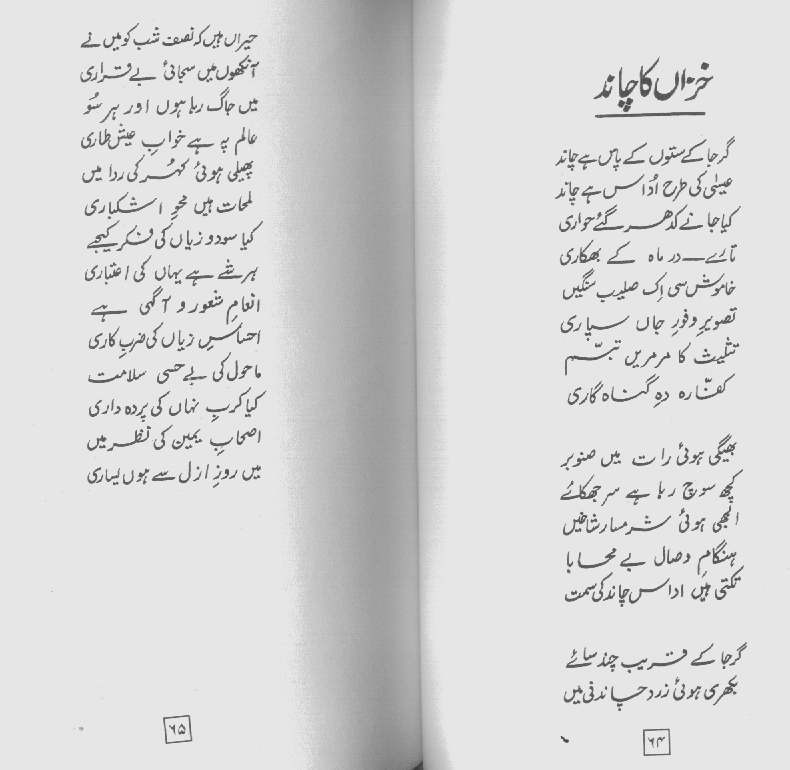 خزاں کا چاند
گرجا کے ستوں کے پاس ہے چاند
عیسٰی کی طرح اُداس ہے چاند
کیا جانے کدھر گئے حواری
تارے — در ماہ کے بھکاری
خاموش سی اِک صلیب سنگیں
تصویرِ وفورِ جاں سپاری
تثلیث کا مرمریں تبسّم
کفّارہ دہِ گناہ گاری
بھیگی ہوئی رات میں صنوبر
کچھ سوچ رہا ہے سر جھکائے
الجھی ہوئی شرمسار شاخیں
ہنگامِ وصال بے محابا
تکتی ہیں اداس چاند کی سمت
گرجا کے قریب چند سائے
بکھری ہوئی زرد چاندنی میں
۶۴
حیراں ہیں کہ نصف شب کو میں نے
آنکھوں میں سجائی بے قراری
میں جاگ رہا ہوں اور ہر سُو
عالم پہ ہے خوابِ عیش طاری
پھیلی ہوئی کہُر کی ردا میں
لمحات ہیں محوِ اشکباری
کیا سود و زیاں کی فکر کیجے
ہر شے ہے یہاں کی اعتباری
انعامِ شعور و آگہی ہے
احساسِ زیاں کی ضربِ کاری
ماحول کی بے حسی سلامت
کیا کربِ نہاں کی پردہ داری
اصحابِ یمین کی نظر میں
میں روزِ ازل سے ہوں یساری
۶۵